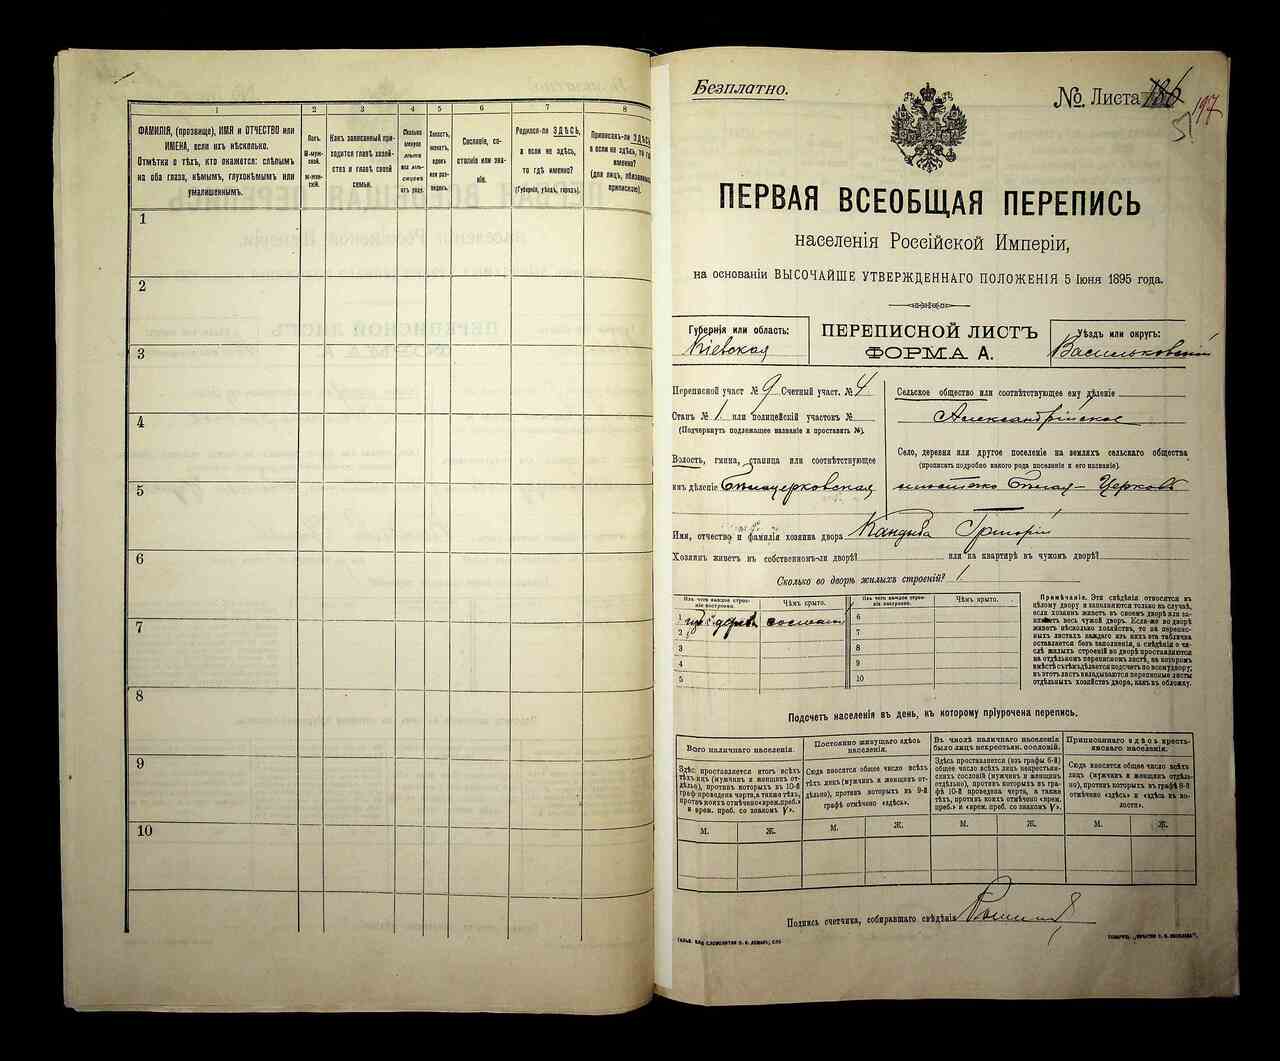 1
2
3
4
5
6
7
8
ФАМИЛІЯ, (прозвище), ИМЯ и ОТЧЕСТВО или
ИМЕНА, если ихъ нѣсколько.
Отмѣтка о тѣхъ, кто окажется: слѣпымъ
на оба глаза, нѣмымъ, глухонѣмымъ или
умалишеннымъ.
Полъ.
М-муж-
ской.
Ж-жен-
скій.
Какъ записанный при-
ходится главѣ хозяй-
ства и главѣ своей
семьи.
Сколько
минуло
лѣтъ
или мѣ-
сяцевъ
отъ роду.
Холостъ,
женатъ,
вдовъ
или раз-
веденъ.
Сословіе, со-
стояніе или зва-
ніе.
Родился-ли ЗДѢСЬ,
а если не здѣсь,
то гдѣ именно?
(Губернія, уѣздъ, городъ).
Приписанъ-ли ЗДѢСЬ,
а если не здѣсь, то гдѣ
именно?
(для лицъ, обязанныхъ
припискою).
1
2
3
4
5
6
7
8
9
10
Безплатно.
№ Листа 186
197
ПЕРВАЯ ВСЕОБЩАЯ ПЕРЕПИСЬ
населенія Россійской Имперіи,
на основаніи ВЫСОЧАЙШЕ УТВЕРЖДЕННАГО ПОЛОЖЕНІЯ 5 Іюня 1895 года.
Губернія или область:
Кіевская
ПЕРЕПИСНОЙ ЛИСТЪ
ФОРМА А.
Уѣздъ или округъ:
Васильковскій
Переписной участ. № 9 Счетный участ. № 4
Станъ № 1 или полицейскій участокъ №
(Подчеркнуть подлежащее названіе и проставить №).
Волость, гмина, станица или соотвѣтствующее
имъ дѣленіе Бѣлоцерковская
Сельское общество или соотвѣтствующее ему дѣленіе
Александрійское
Село, деревня или другое поселеніе на земляхъ сельскаго общества
(прописать подробно какого рода поселеніе и его названіе).
мѣстечко Бѣлая-Церковь
Имя, отчество и фамилія хозяина двора Кандыба Григорій
Хозяинъ живетъ въ собственномъ-ли дворѣ? или на квартирѣ въ чужомъ дворѣ?
Сколько во дворѣ жилыхъ строеній? 1
Изъ чего каждое строе-
ніе построено.
Чѣмъ крыто.
Изъ чего каждое строе-
ніе построено.
Чѣмъ крыто.
1 изъ дерева соломой
2
3
4
5
6
7
8
9
10
Примѣчаніе. Эти свѣдѣнія относятся къ
цѣлому двору и заполняются только въ случаѣ,
если хозяинъ живетъ въ своемъ дворѣ или за-
нимаетъ весь чужой дворъ. Если-же во дворѣ
живетъ нѣсколько хозяйствъ, то на перепис-
ныхъ листахъ каждаго изъ нихъ эта табличка
оставляется безъ заполненія, а свѣдѣнія о чи-
слѣ жилыхъ строеній во дворѣ проставляются
на отдѣльномъ переписномъ листѣ, на которомъ
вмѣстѣ съ тѣмъ дѣлается подсчетъ по всему двору;
въ этотъ листъ вкладываются переписные листы
отдѣльныхъ хозяйствъ двора, какъ въ обложку.
Подсчетъ населенія въ день, къ которому пріурочена перепись.
Всего наличнаго населенія.
Постоянно живущаго здѣсь
населенія.
Въ числѣ наличнаго населенія
было лицъ некрестьян. сословій.
Приписаннаго здѣсь кресть-
янскаго населенія.
Здѣсь проставляется итогъ всѣхъ
тѣхъ лицъ (мужчинъ и женщинъ от-
дѣльно), противъ которыхъ въ 10-й
графѣ проведена черта, а также тѣхъ,
противъ коихъ отмѣчено «врем. преб.»
и «врем. преб. со знакомъ V».
Сюда вносится общее число всѣхъ
тѣхъ лицъ (мужчинъ и женщинъ от-
дѣльно), противъ которыхъ въ 9-й
графѣ отмѣчено «здѣсь».
Здѣсь проставляется (изъ графы 6-й)
общее число всѣхъ лицъ некрестьян-
скихъ сословій (мужчинъ и женщинъ
отдѣльно), противъ которыхъ въ гра-
фѣ 10-й проведена черта, а также
тѣхъ, противъ коихъ отмѣчено «врем.
преб.» и «врем. преб. со знакомъ V».
Сюда вносится общее число всѣхъ
лицъ (мужчинъ и женщинъ отдѣль-
но), противъ которыхъ въ графѣ 8-й
отмѣчено «здѣсь» и «здѣсь въ во-
лости».
М.
Ж.
М.
Ж.
М.
Ж.
М.
Ж.
Подпись счетчика, собиравшаго свѣдѣнія